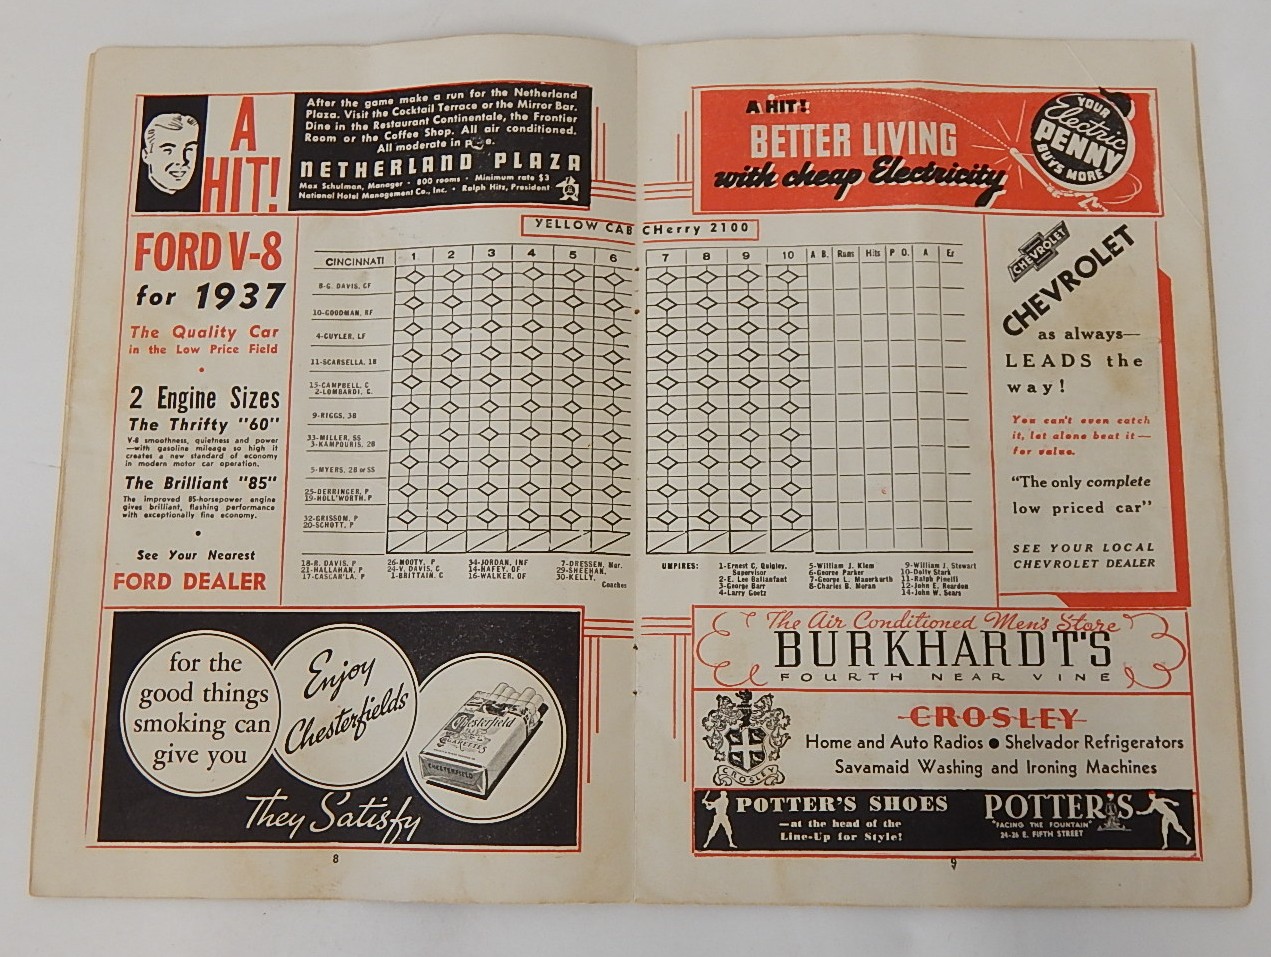 A
HIT!
After the game make a run for the Netherland
Plaza. Visit the Cocktail Terrace or the Mirror Bar.
Dine in the Restaurant Continentale, the Frontier
Room or the Coffee Shop. All air conditioned.
All moderate in
NETHERLAND PLAZA
Max Schulman, Manager • 800 rooms • Minimum rate $3
National Hotel Management Co., Inc. • Ralph Hitz, President
A HIT!
BETTER LIVING
with cheap Electricity
YOUR
Electric
PENNY
BUYS MORE
YELLOW CAB CHerry 2100
FORD V-8
for 1937
The Quality Car
in the Low Price Field
2 Engine Sizes
The Thrifty "60"
V-8 smoothness, quietness and power
—with gasoline mileage so high it
creates a new standard of economy
in modern motor car operation.
The Brilliant "85"
The improved 85-horsepower engine
gives brilliant, flashing performance
with exceptionally fine economy.
See Your Nearest
FORD DEALER
CINCINNATI 1 2 3 4 5 6 7 8 9 10 A B. Runs Hits P O. A Er
8-G. DAVIS, CF
10-GOODMAN, RF
4-CUYLER, LF
11-SCARSELLA, 1B
15-CAMPBELL, C
2-LOMBARDI, C.
9-RIGGS, 3B
33-MILLER, SS
3-KAMPOURIS, 2B
5-MYERS, 2B or SS
25-DERRINGER, P
19-HOLL'WORTH, P
32-GRISSOM, P
20-SCHOTT, P
18-R. DAVIS, P 26-MOOTY, P 34-JORDAN, INF 7-DRESSEN, Mgr.
21-HALLAHAN, P 24-V. DAVIS, C 14-HAFEY, OF 29-SHEEHAN,
17-CASCAR'LA, P 1-BRITTAIN, C 16-WALKER, OF 30-KELLY,
Coaches
UMPIRES: 1-Ernest C. Quigley, 5-William J. Klem 9-William J. Stewart
Supervisor 6-George Parker 10-Dolly Stark
2-E. Lee Ballanfant 7-George L. Magerkurth 11-Ralph Pinelli
3-George Barr 8-Charles B. Moran 12-John E. Reardon
4-Larry Goetz 14-John W. Sears
CHEVROLET
CHEVROLET
as always—
LEADS the
way!
You can't even catch
it, let alone beat it—
for value.
"The only complete
low priced car"
SEE YOUR LOCAL
CHEVROLET DEALER
for the
good things
smoking can
give you
Enjoy
Chesterfields
Chesterfield
CIGARETTES
CHESTERFIELD
They Satisfy
8
The Air Conditioned Men's Store
BURKHARDT'S
FOURTH NEAR VINE
CROSLEY
CROSLEY
Home and Auto Radios ● Shelvador Refrigerators
Savamaid Washing and Ironing Machines
POTTER'S SHOES
—at the head of the
Line-Up for Style!
POTTER'S
"FACING THE FOUNTAIN"
24-26 E. FIFTH STREET
9